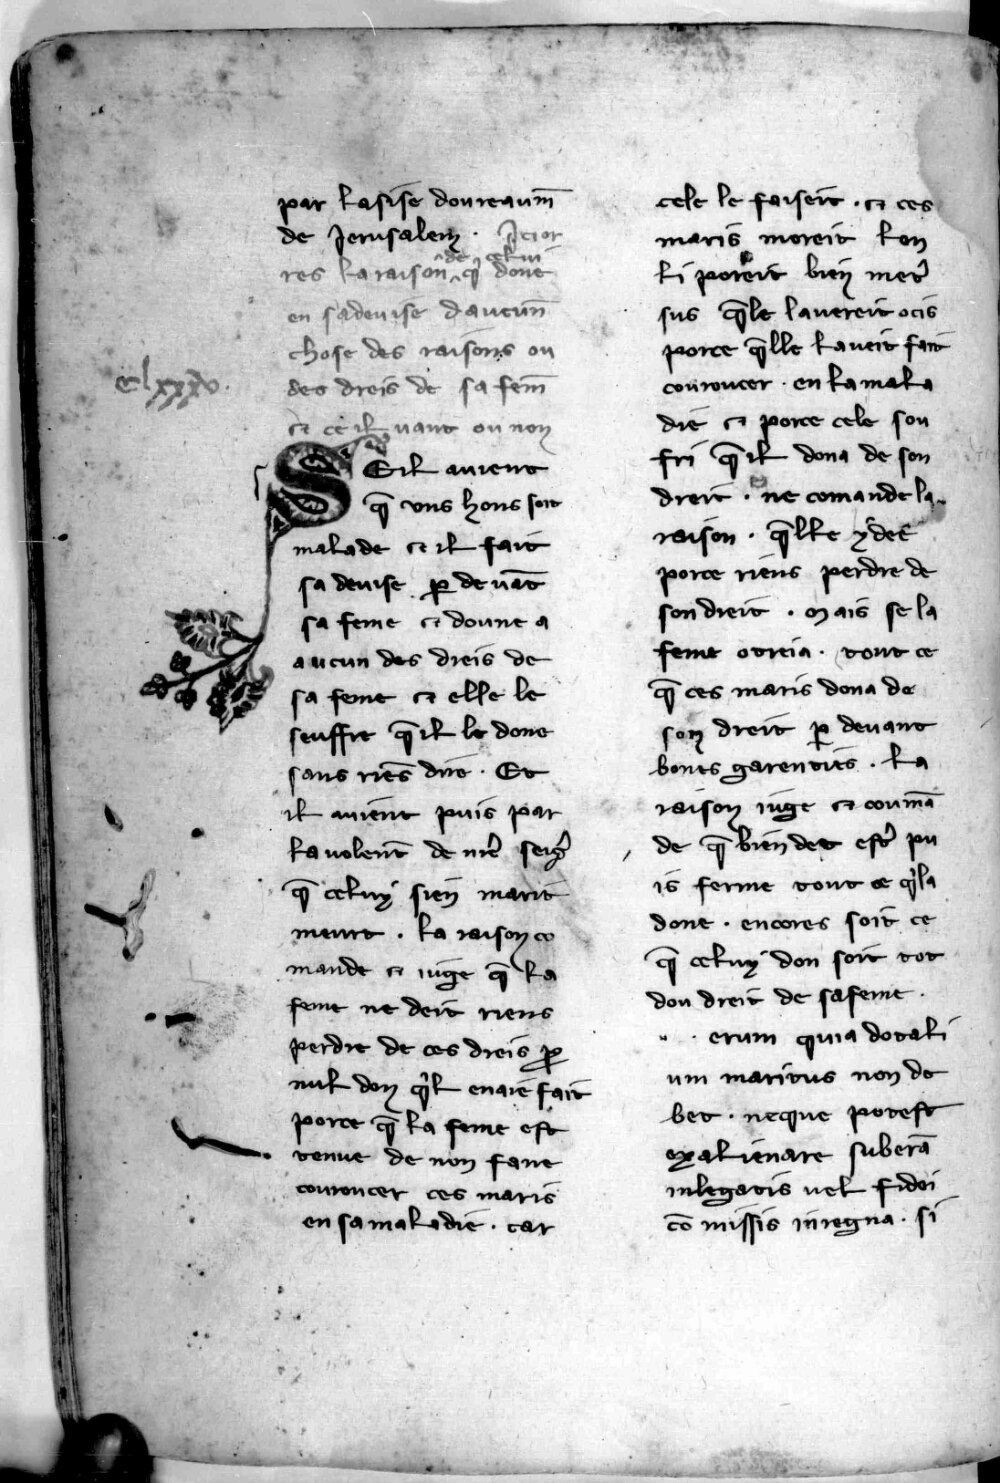 par lasise doureaum̄
de Jerusalem · Jcior
res la raison ^de q̄ celui done
en sadeuise daucun̄
chose des raisons ou
des dreis de sa fem̄
et ce il uaut ou non
clxxxv.
SEil auient
q̄ vns hons soit
malade et il fait
sa deuise ꝑ deuāt
sa feme et doune a
aucun des dreis de
sa feme et elle le
seuffre q̄ il le done
sans riēs dire · Et
il auient puis par
la uolent̄ de nr̄e seigr̄
q̄ celuy sien marit
meurt · la raison co
mande et iuge q̄ la
feme ne deit riens
perdre de ces dreis ꝑ
nul don q̓l enaie fait
porce q̄ la feme est
tenue de non faire
couroucer ces maris
en samaladie · car
cele le faiseit · et ces
maris moreit lon
li poreit bien metr̄
sus q̄le lauereit ocis
porce q̄lle laueit fait
couroucer · en lamala
die et porce cele sou
fri q̄ il dona de son
dreit · ne comande la
raison · q̄lle y dee
porce riens perdre de
son dreit · Mais se la
feme otreia · tout ce
q̄ ces maris dona de
son dreit ꝑ deuant
bones garenties · la
raison iuge et coumā
de q̄ bien det estr̄ pu
is ferme tout ce q̓la
done · encores soit ce
q̄ celuy don soit tot
dou dreit de safeme ·
erum quia dotali
um maritus non de
bet · neque potest
exalienare suberā
inlegatis uel fidei
cō missis inregna · si